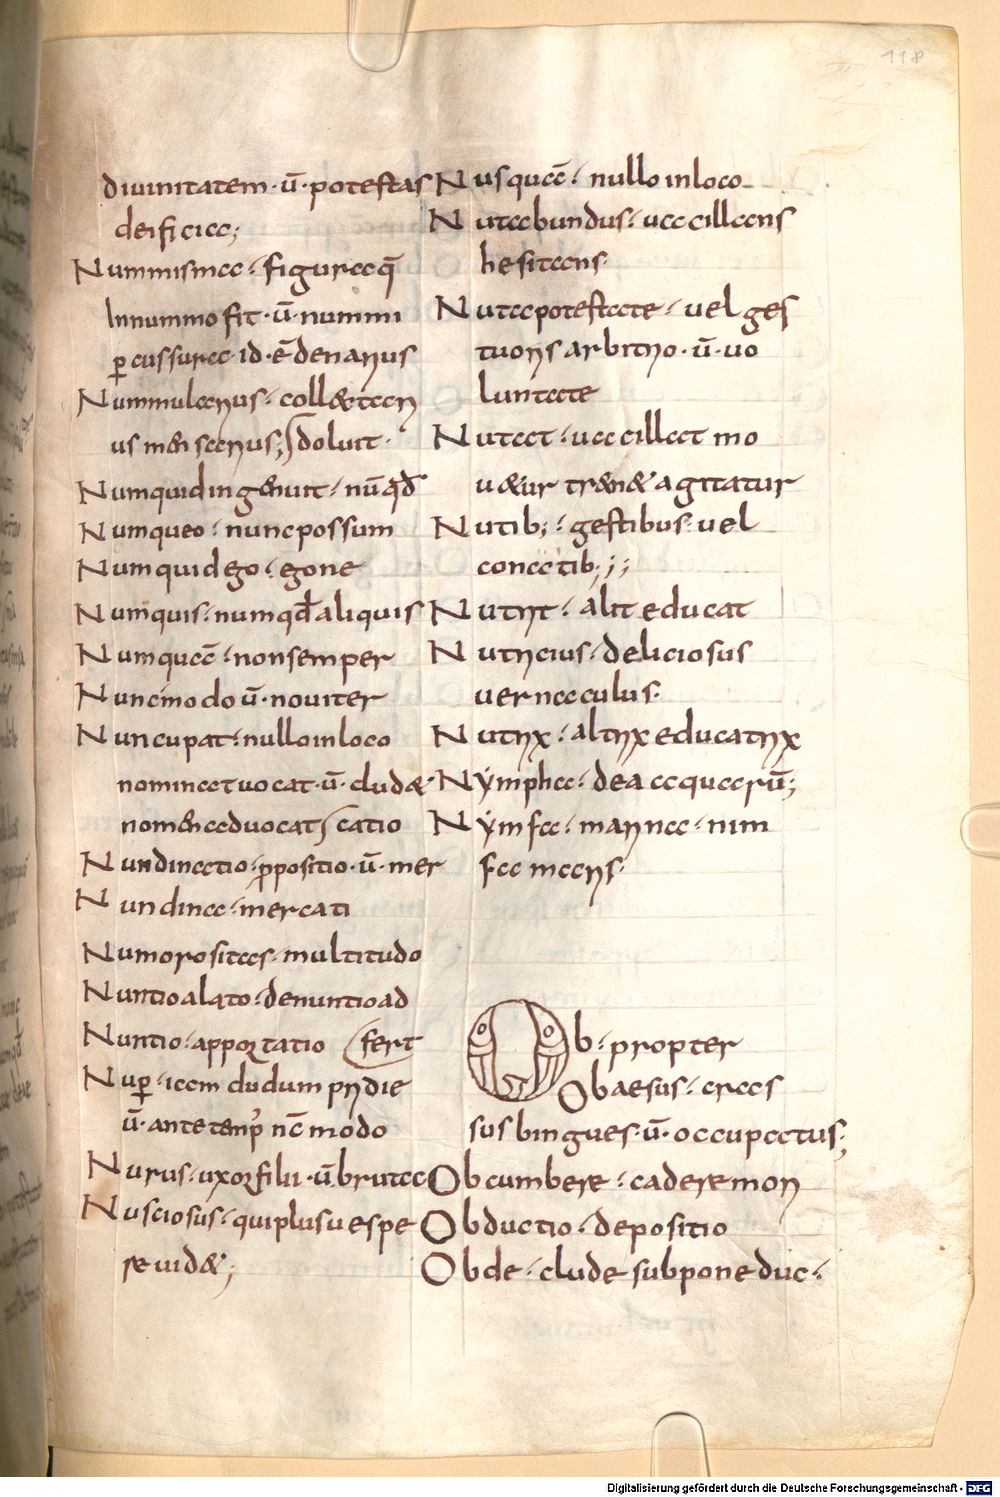 118
diuinitatem · ū · potestas
deificia;
Nummisma · figuraq̄
In nummo fit · ū · nummi
ꝑcussura · id · ē denarius
Nummularius · coll&tari
us mensarius; doluit ·
Numquid ingemuit · nūq̄d
Numqueo · nunc possum
Numquid ego · egone
Numquis · numq̄d aliquis
Numquā · non semper
Nunc modo ū · nouiter
Nuncupat · nullo in loco
nominat uocat · ū · clud&
nomen aduocat catio
Nundinatio · p̄positio · ū · mer
Nundina · mercati
Numorositas · multitudo
Nuntio alato · denuntio ad
Nuntio · apportatio fert
Nuꝑ · iam dudum pridie
ū · ante temp' nc̄ modo
Nurus · uxor filii · ū bruta
Nusciosus · qui plus uespe
re uid&;
Nusquā · nullo in loco
Nutabundus · uacillans
hesitans
Nuta potestate · uel ges
tuoris arbitrio · ū · uo
luntate
Nutat · uacillat mo
u&ur trem& agitatur
Nutib; · gestibus uel
conatib;;
Nutrit · alit educat
Nutricius · deliciosus
uernaculus
Nutrix · altrix educatrix
Nympha · dea aquarū;
Nymfa · marina · nim
fa maris
Ob · propter
Obaesus · cras
sus bingues · ū · occupatus;
Obcumbere · cadere mori
Obductio · depositio
Obde · clude subpone duc ·
Digitalisierung gefördert durch die Deutsche Forschungsgemeinschaft - DFG